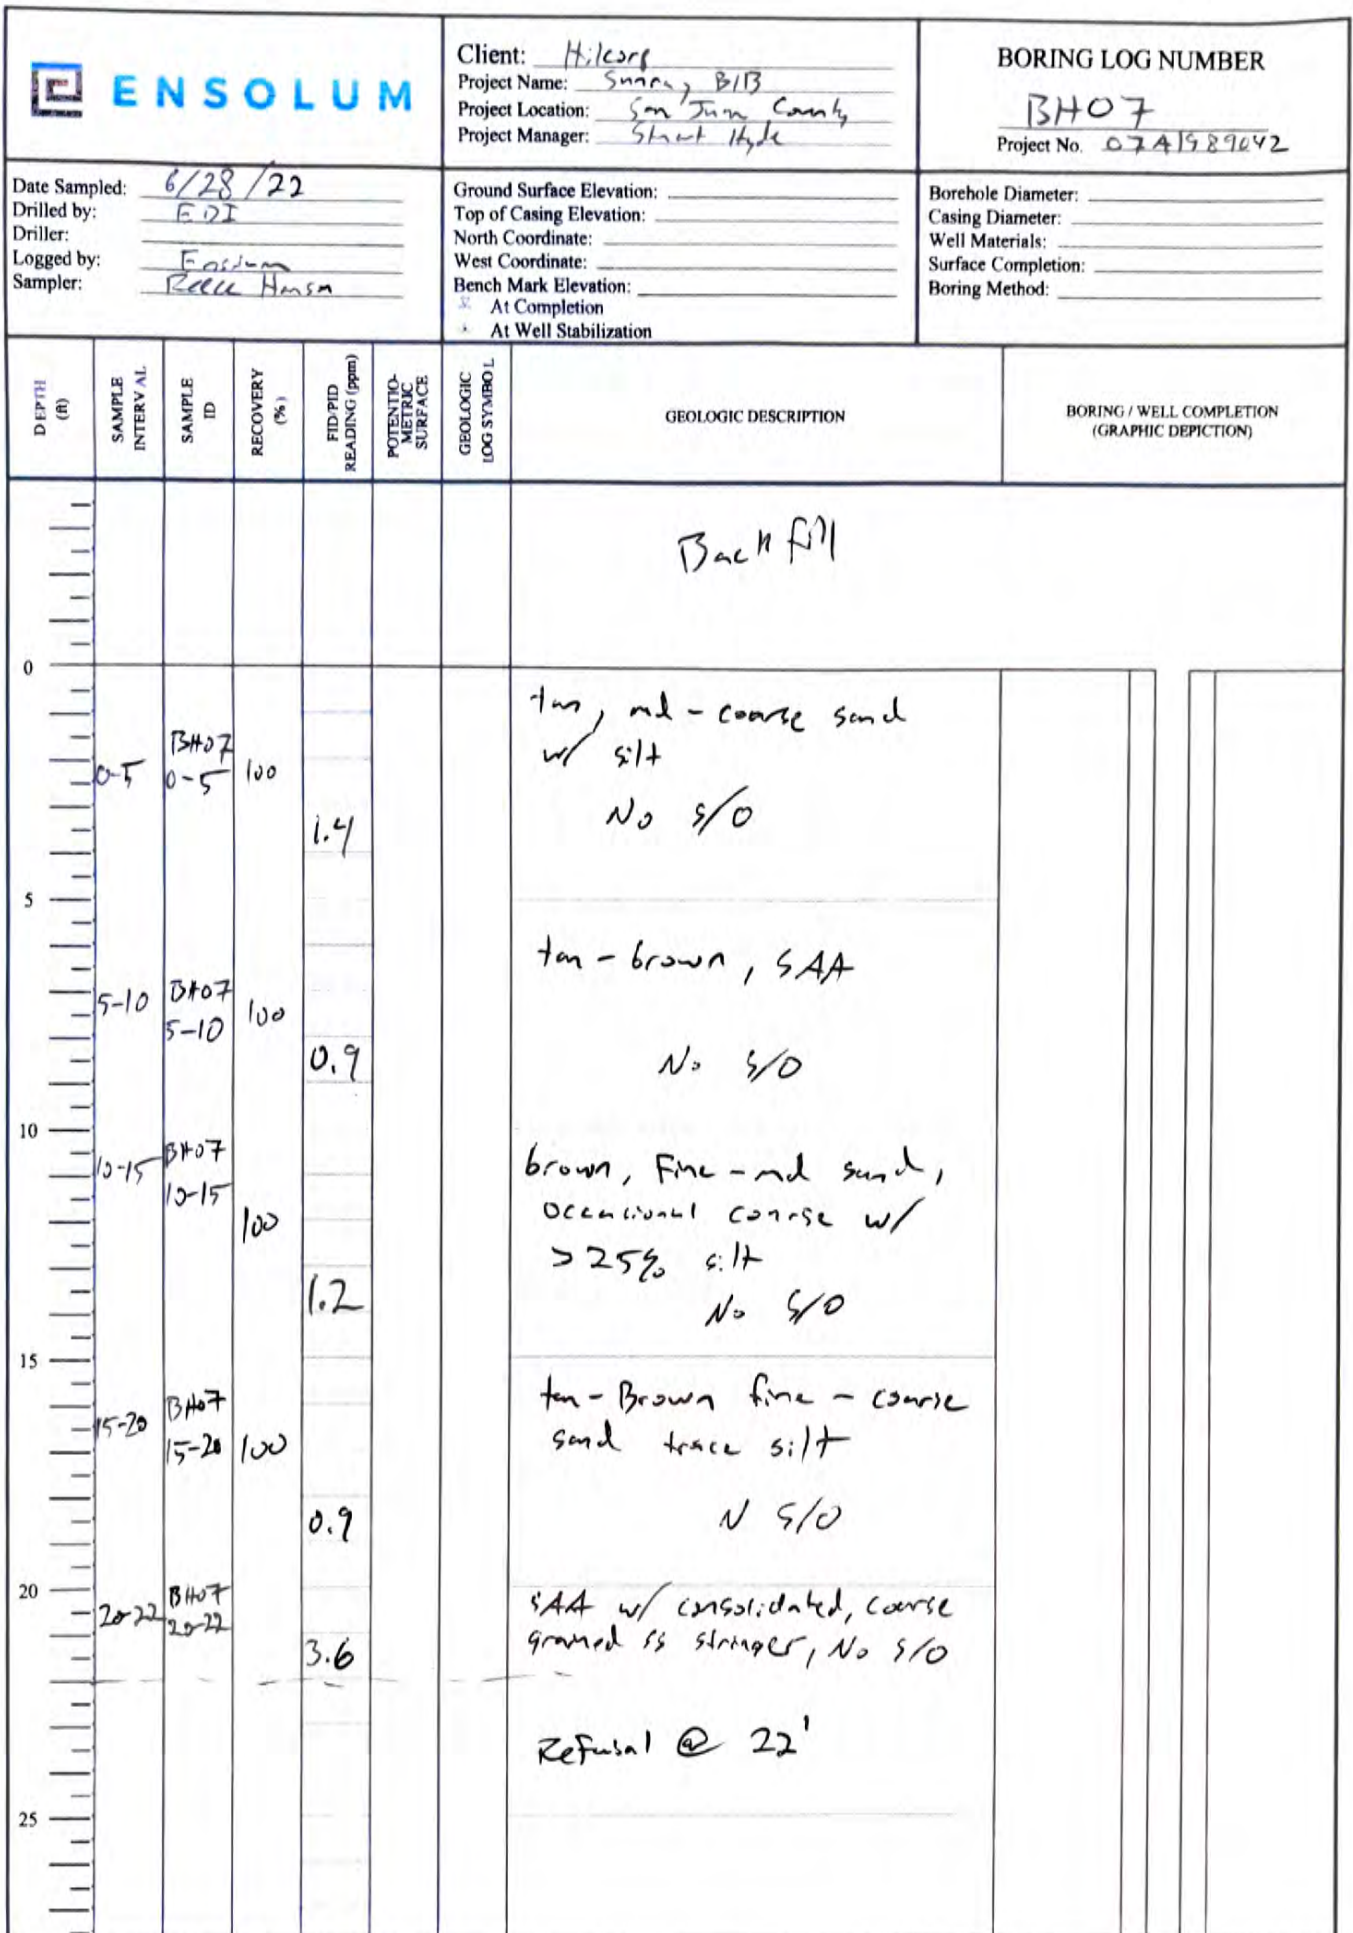 ENSOLUM
Client: Hilcorp
Project Name: Sunray B1B
Project Location: San Juan County
Project Manager: Stuart Hyde
BORING LOG NUMBER
BH07
Project No. 07A1989042
Date Sampled: 6/28/22
Drilled by: EDI
Driller:
Logged by: Ensolum
Sampler: Reece Hanson
Ground Surface Elevation:
Top of Casing Elevation:
North Coordinate:
West Coordinate:
Bench Mark Elevation:
At Completion
At Well Stabilization
Borehole Diameter:
Casing Diameter:
Well Materials:
Surface Completion:
Boring Method:
DEPTH
(ft)
SAMPLE
INTERVAL
SAMPLE
ID
RECOVERY
(%)
FID/PID
READING (ppm)
POTENTIO-
METRIC
SURFACE
GEOLOGIC
LOG SYMBOL
GEOLOGIC DESCRIPTION
BORING / WELL COMPLETION
(GRAPHIC DEPICTION)
Backfill
0
tan, md - coarse sand
w/ silt
BH07
0-5 0-5 100
No S/O
1.4
5
tan - brown, SAA
5-10 BH07 100
5-10
0.9 No S/O
10
10-15 BH07
10-15
100
brown, Fine - md sand,
occasional coarse w/
>25% silt
1.2 No S/O
15
15-20 BH07
15-20 100
tan - Brown fine - coarse
sand trace silt
0.9 N S/O
20
20-22 BH07
20-22
SAA w/ consolidated, coarse
grained ss stringer, No S/O
3.6
Refusal @ 22'
25